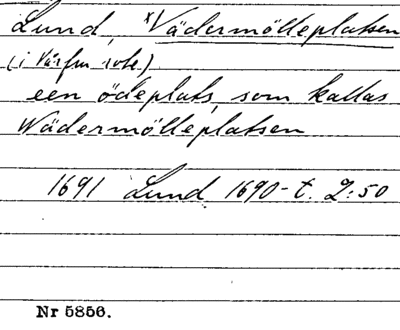 Lund, ×Vädermölleplatsen
(i Vårfru rote.)
een ödeplats, som kallas
Wädermölleplatsen
1691 Lund 1690-t. 2:50
Nr 5856.